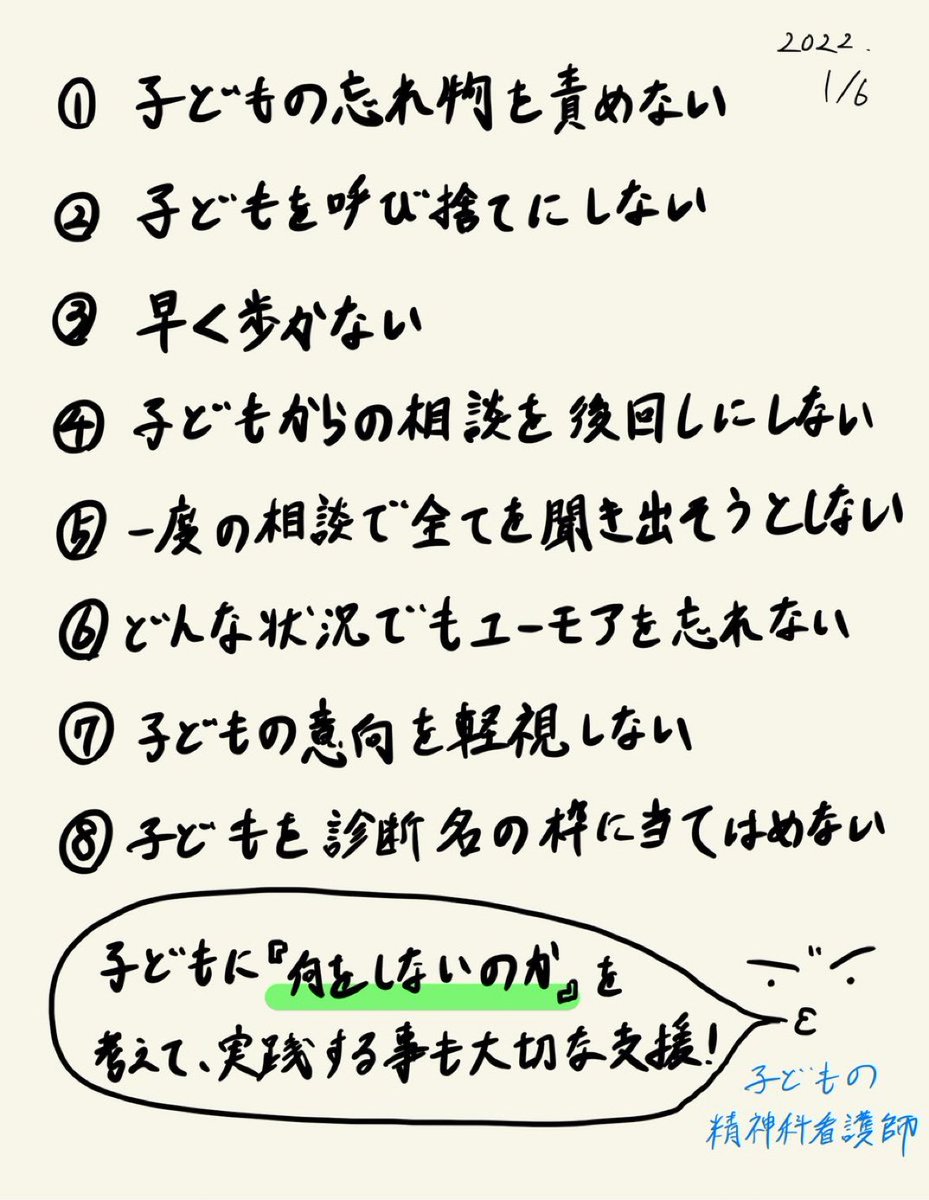 2022.
1/6
① 子どもの忘れ物を責めない
② 子どもを呼び捨てにしない
③ 早く歩かない
④ 子どもからの相談を後回しにしない
⑤ 一度の相談で全てを聞き出そうとしない
⑥ どんな状況でもユーモアを忘れない
⑦ 子どもの意向を軽視しない
⑧ 子どもを診断名の枠に当てはめない
子どもに『何をしないのか』を
考えて、実践する事も大切な支援!
子どもの
精神科看護師